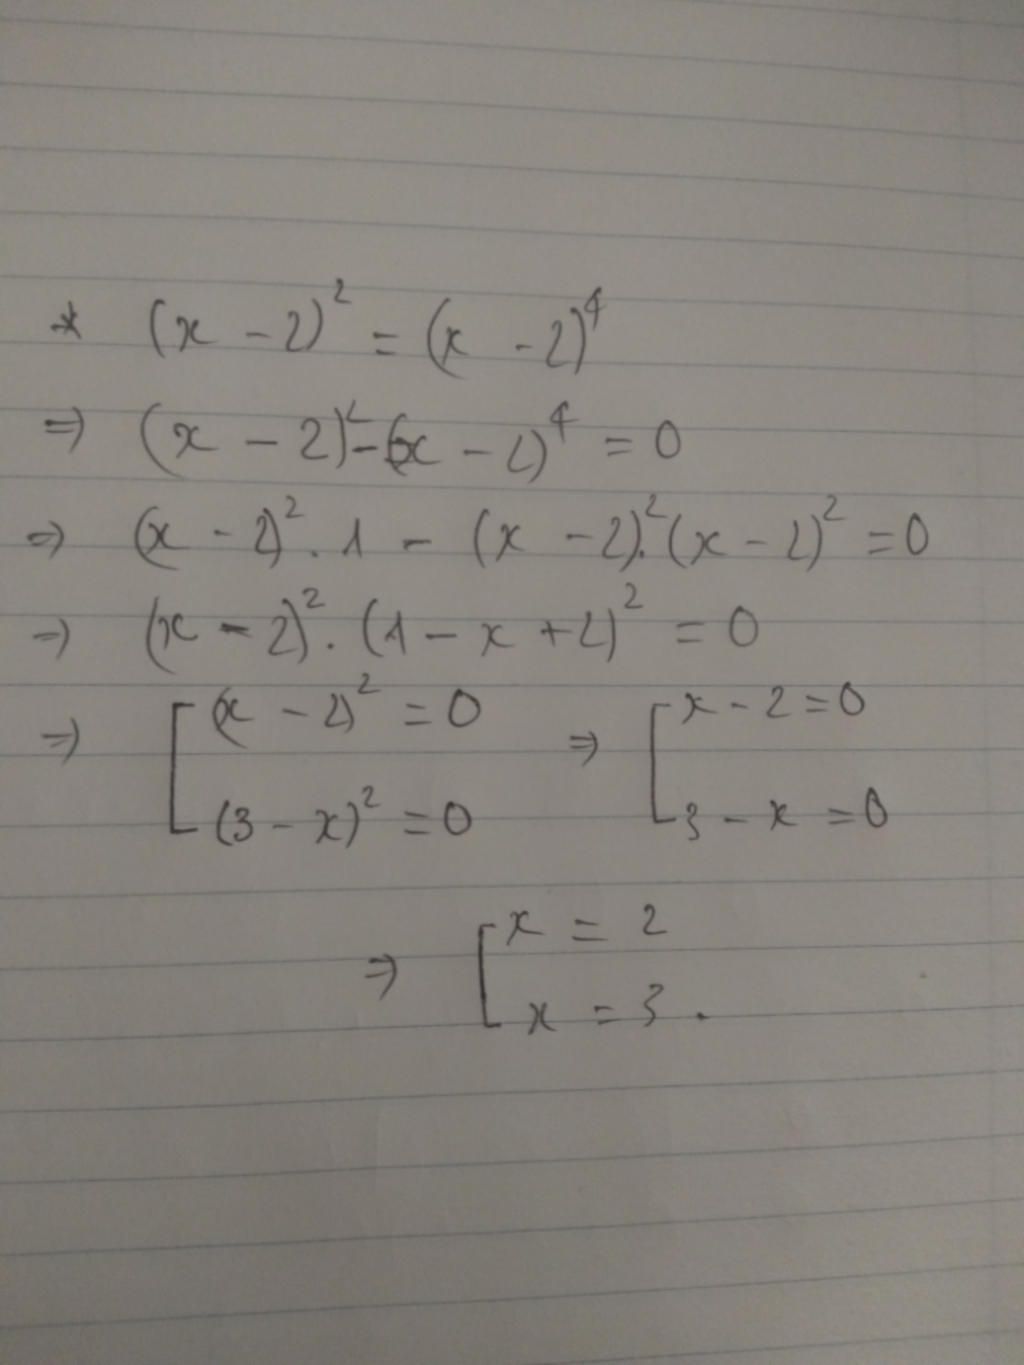 * (x - 2)² = (x - 2)⁴
⇒ (x - 2)² - (x - 2)⁴ = 0
⇒ (x - 2)² . 1 - (x - 2)² . (x - 2)² = 0
⇒ (x - 2)² . (1 - x + 2)² = 0
⇒ [ (x - 2)² = 0 ⇒ [ x - 2 = 0
(3 - x)² = 0 3 - x = 0
⇒ [ x = 2
x = 3 .